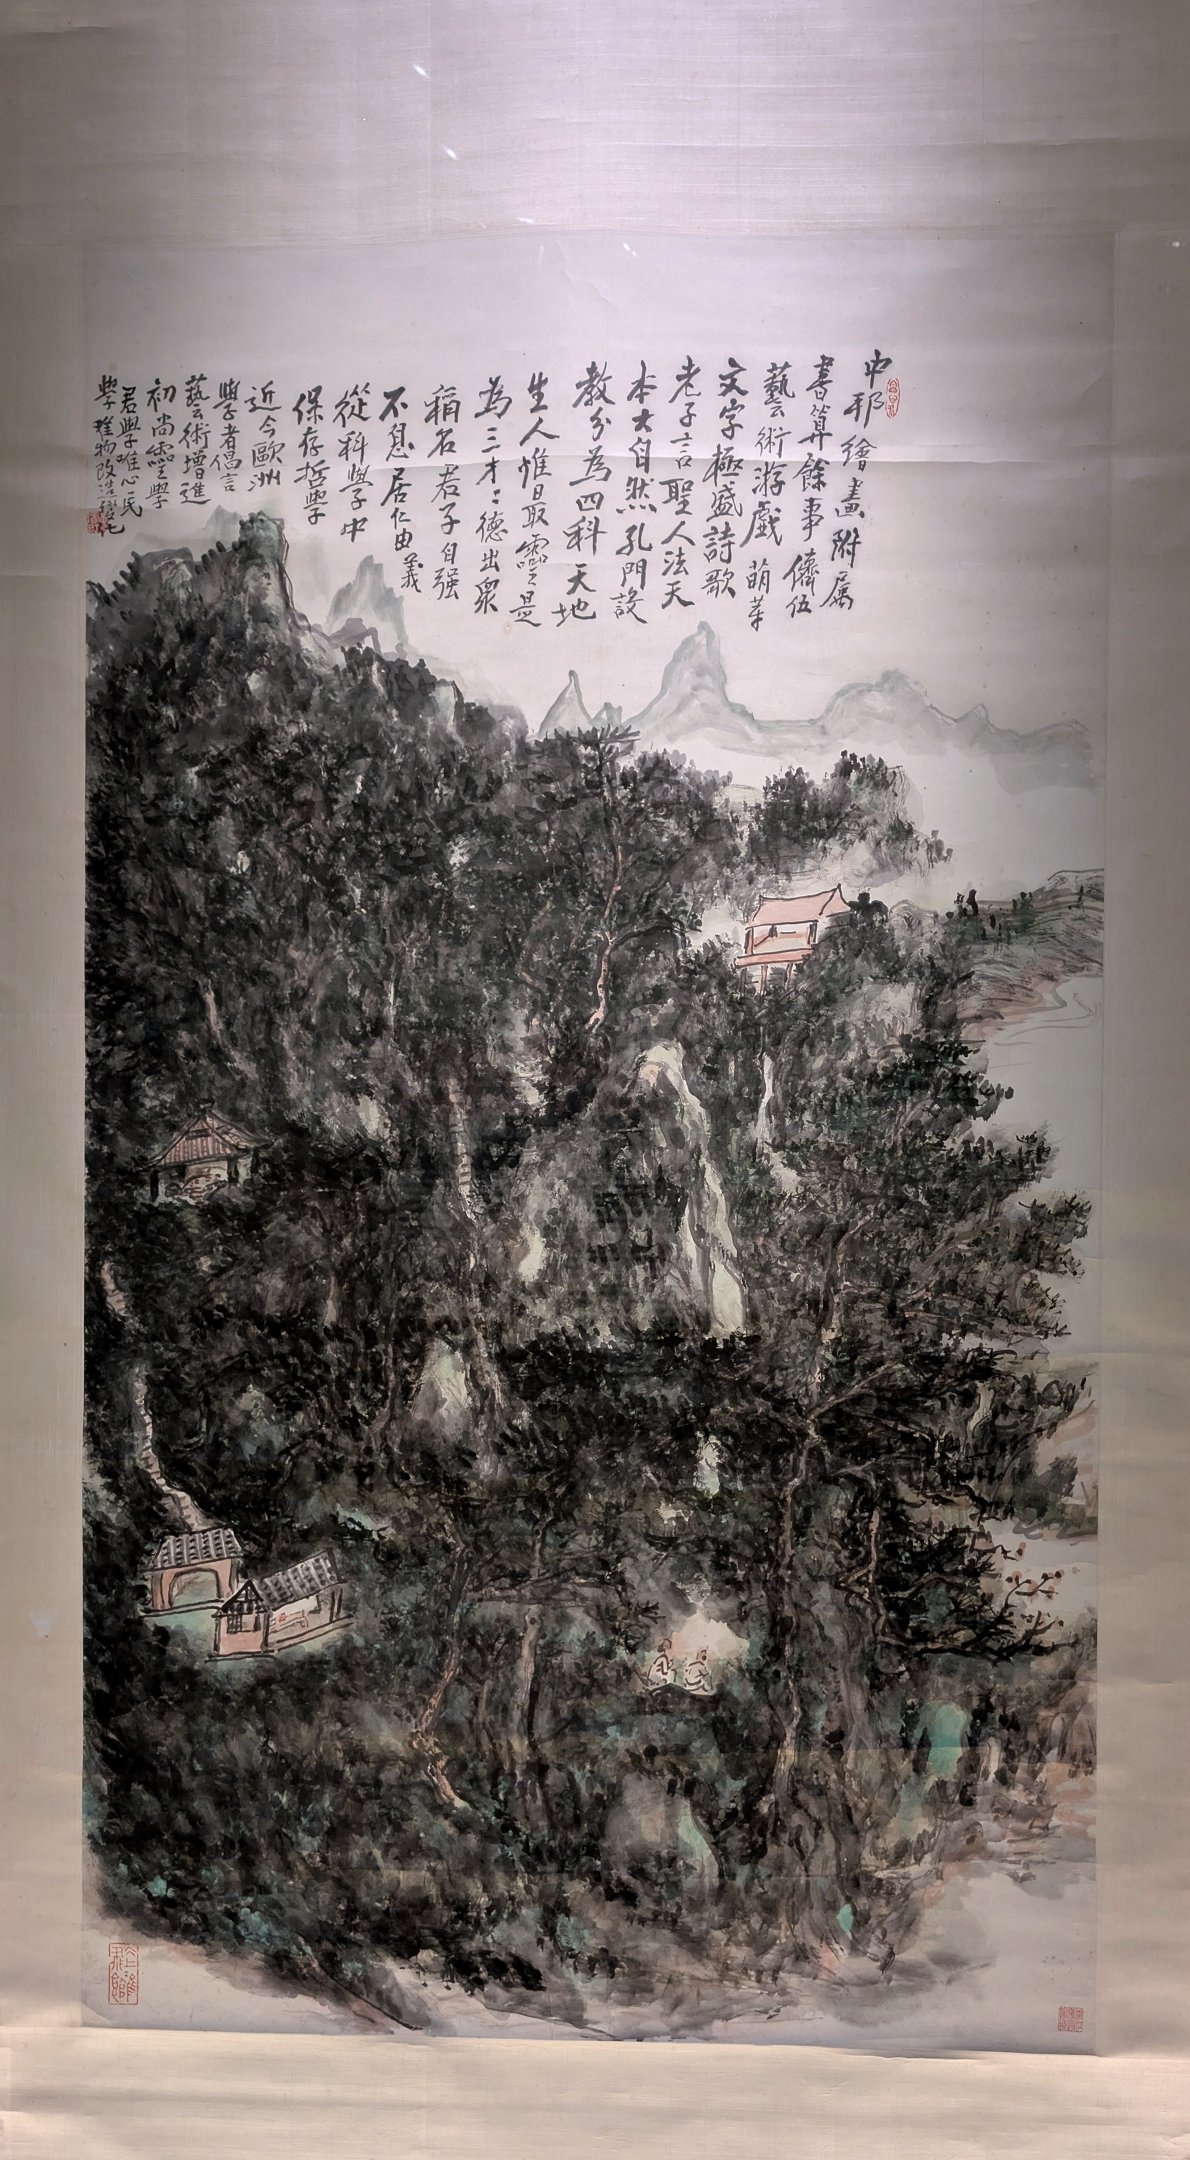 中邦繪畫附屬
書算餘事儕伍
藝術游戲萌芽
文字極盛詩歌
老子言聖人法天
本大自然孔門設
教分為四科天地
生人惟最靈是
為三才〻德出衆
稱名君子自强
不息居仁由義
從科學中
保存哲學
近今歐洲
學者倡言
藝術增進
初尚靈學
君學唯心民
學唯物改造變化